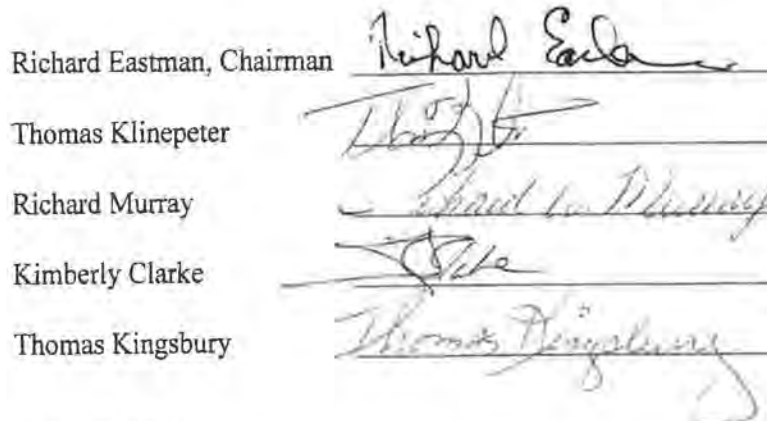 Richard Eastman, Chairman Richard
Thomas Klinepeter
Richard Murray Murray
Kimberly Clarke
Thomas Kingsbury Thomas Kingsbury